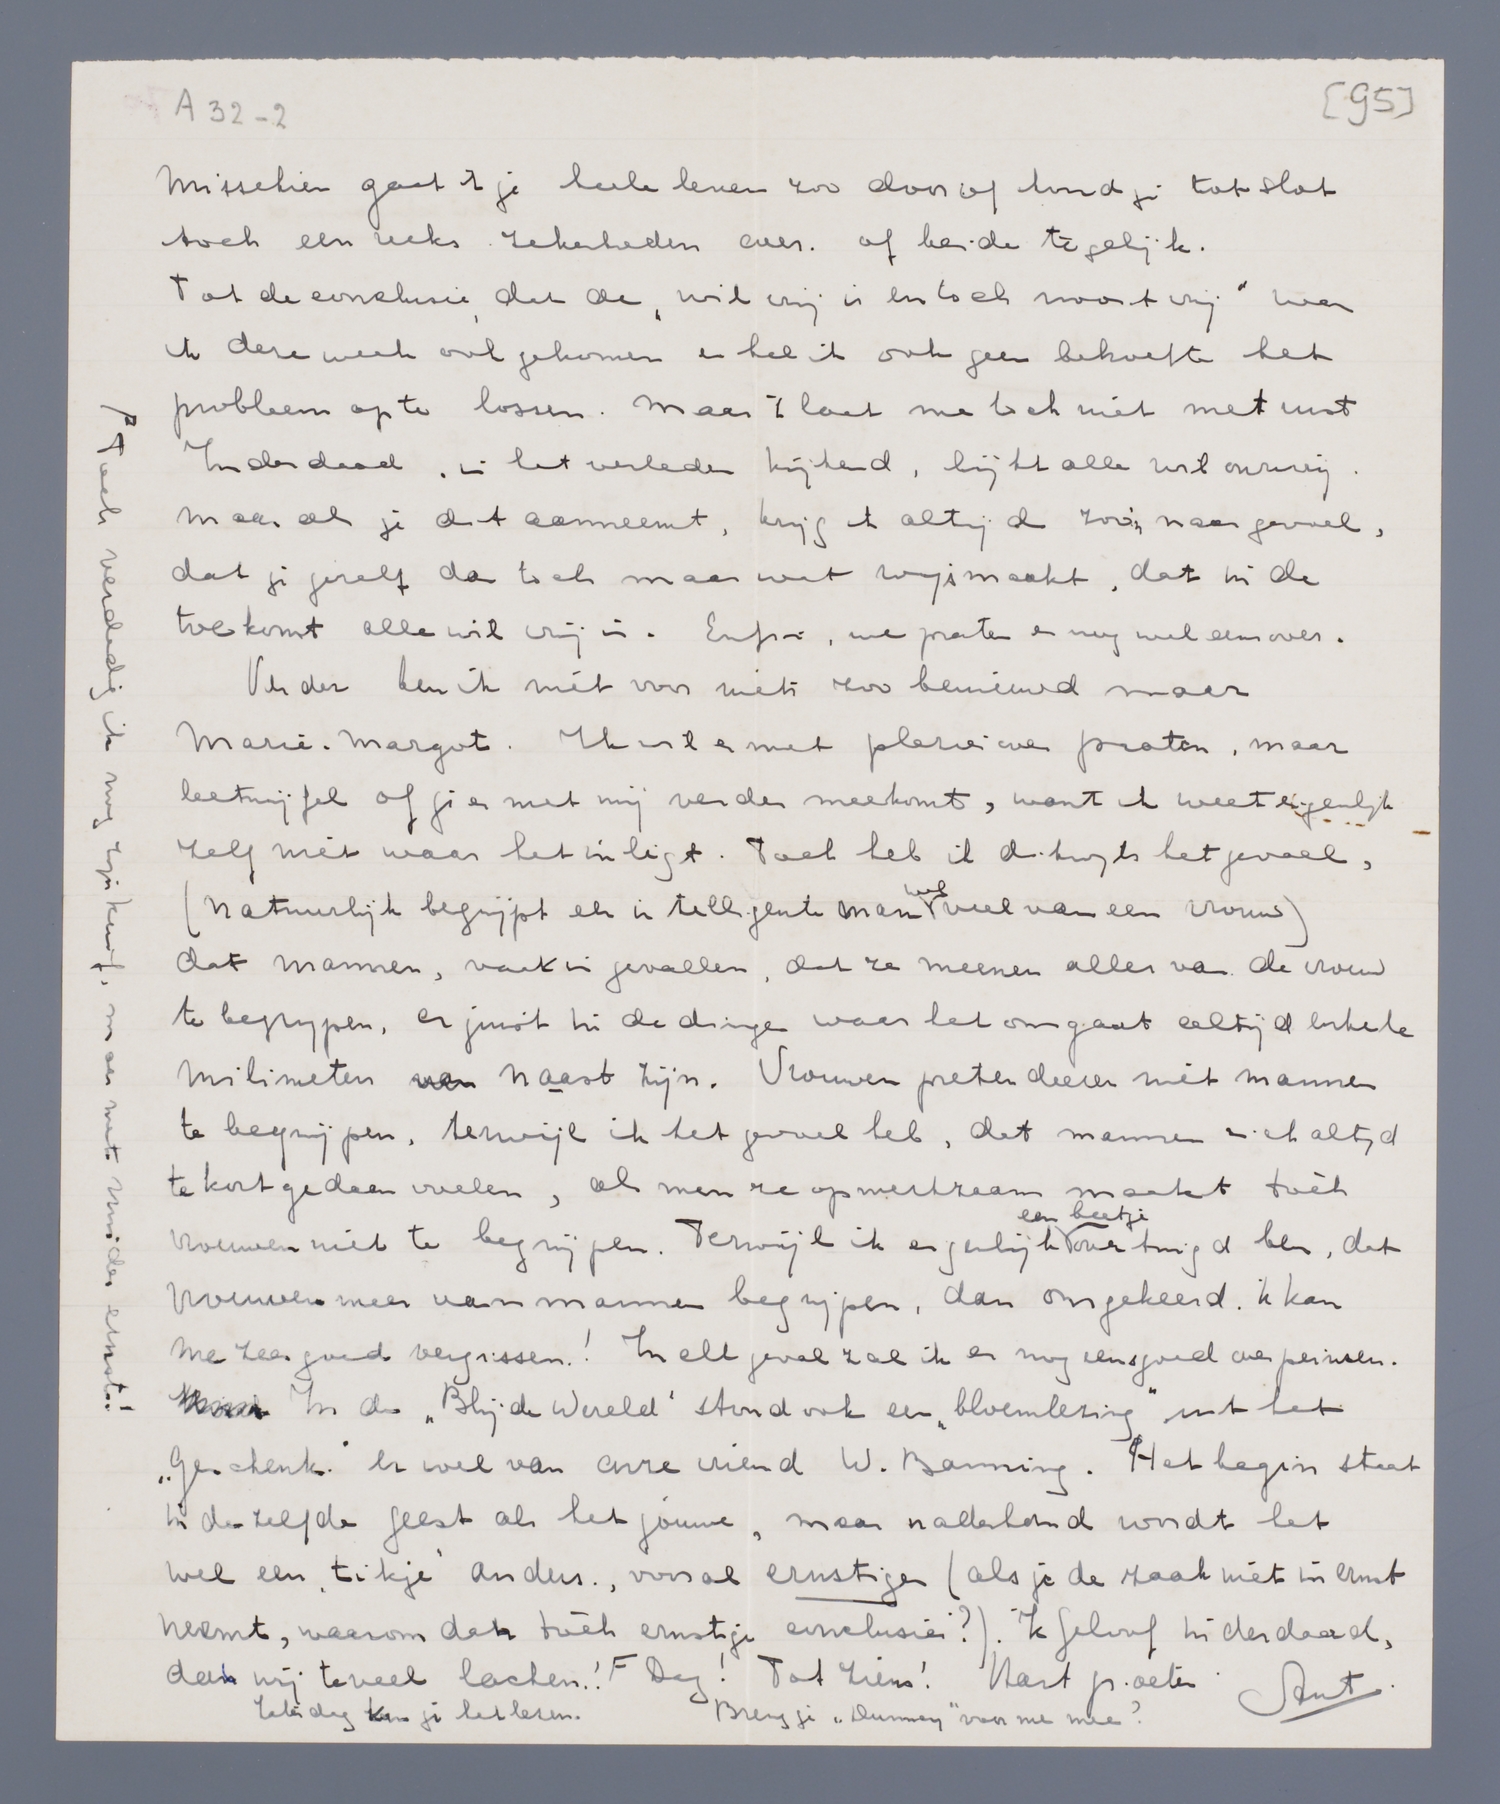 A 32-2
[95]
Misschien gaat 't je heele leven zoo door of houd je tot slot
toch een reeks zekerheden over. of beide tegelijk.
Tot de conclusie, dat de „wil vrij is en toch nooit vrij" was
ik deze week ook gekomen en heb ik ook geen behoefte het
probleem op te lossen. Maar 't laat me toch niet met rust
Inderdaad, in het verleden kijkend, lijkt alle wil onvrij.
Maar als je dit aanneemt, krijg ik altijd zoo'n naar gevoel,
dat je jezelf dan toch maar wat wijsmaakt, dat in de
toekomst alle wil vrij is. Enfin, we praten er nog wel eens over.
Verder ben ik niet voor niets zoo benieuwd naar
Marie-Margot. Ik wil er met plezier over praten, maar
betwijfel of je er met mij verder meekomt, want ik weet eigenlijk
zelf niet waar het in ligt. Toch heb ik dikwijls het gevoel,
(natuurlijk begrijpt een intelligente man wel veel van een vrouw)
dat mannen, vaak in gevallen, dat ze meenen alles van de vrouw
te begrijpen, er juist in de dingen waar het om gaat altijd enkele
milimeters van naast zijn. Vrouwen pretendeeren niet mannen
te begrijpen, terwijl ik het gevoel heb, dat mannen zich altijd
te kort gedaan voelen, als men ze opmerkzaam maakt tòch
vrouwen niet te begrijpen. Terwijl ik eigenlijk een beetje overtuigd ben, dat
vrouwen meer van mannen begrijpen, dan omgekeerd. ik kan
me zeer goed vergissen.! In elk geval zal ik er nog eens goed over peinzen.
In de „Blijde Wereld" stond ook een „bloemlezing" uit het
„Geschenk." En wel van onze vriend W. Banning. Het begin staat
in dezelfde geest als het jouwe, maar naderhand wordt het
wel een 'tikje' anders., vooral ernstiger (als je de zaak niet in ernst
neemt, waarom dan tòch ernstige conclusies?). Ik geloof inderdaad,
dat wij teveel lachen.! Dag! Tot ziens! Ant.
Zaterdag kan je het lezen. Breng je „Dummy" voor me mee?
Toch verdedig ik nog zijn kerst, maar met minder ernst.!